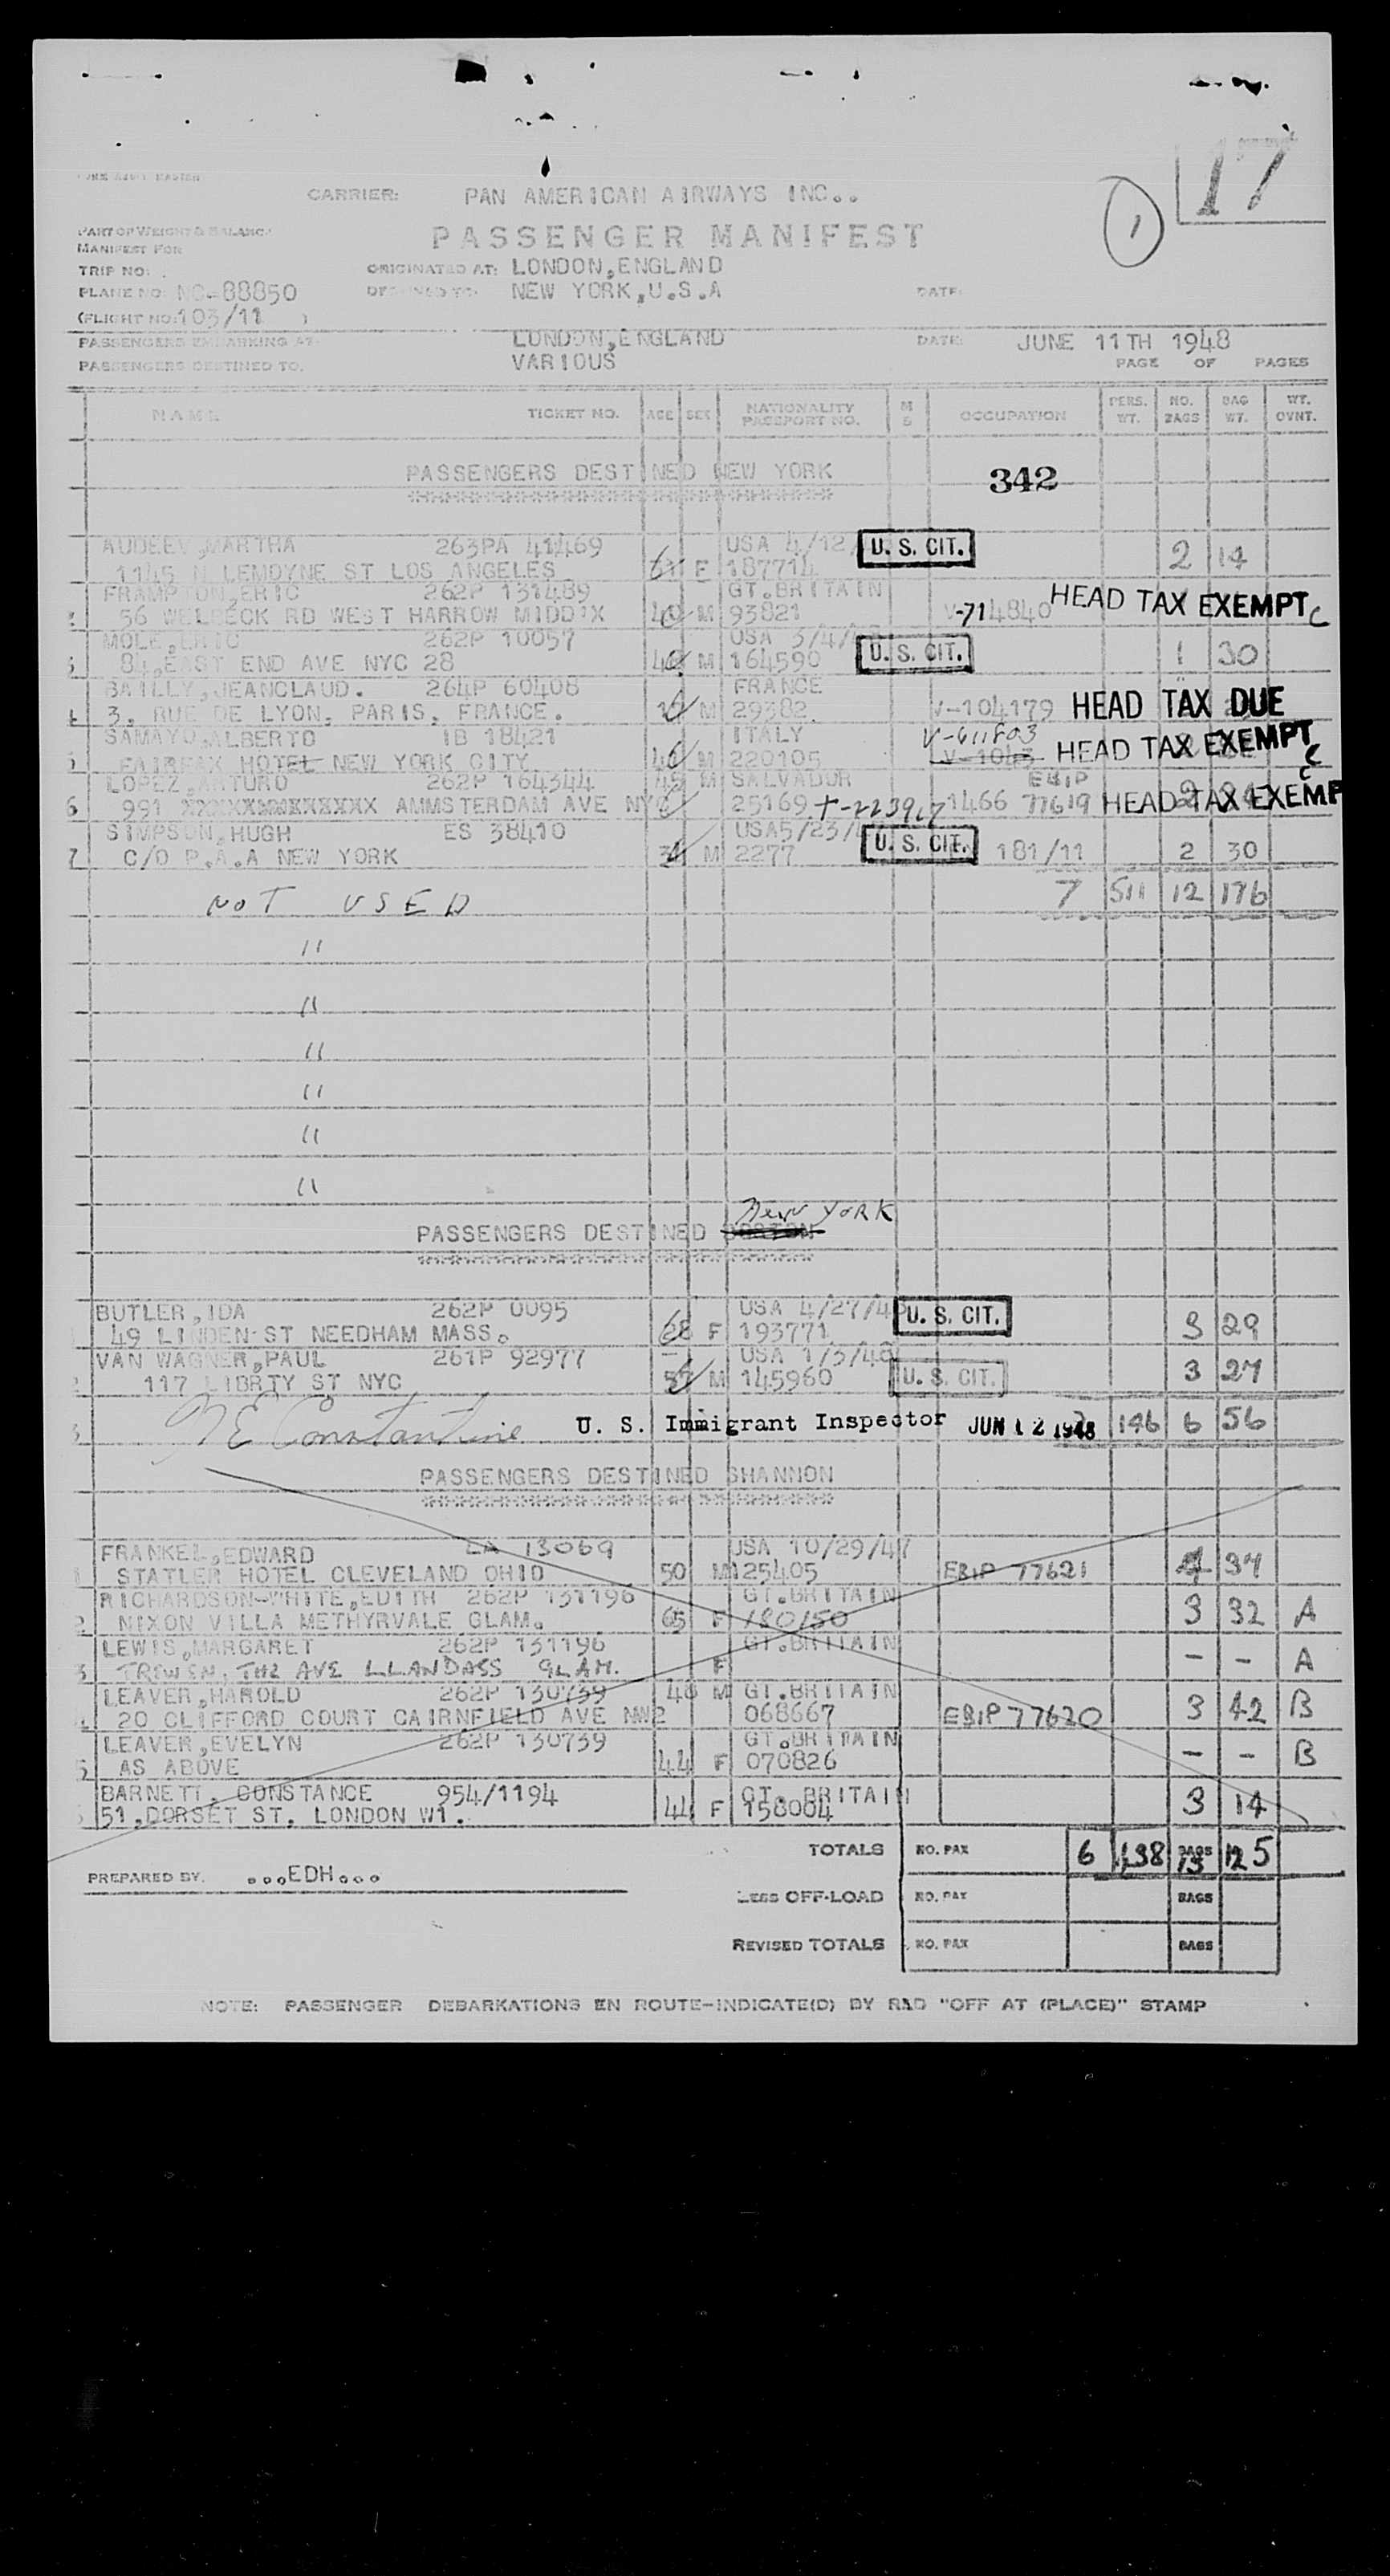 17
1
CARRIER: PAN AMERICAN AIRWAYS INC..
PART OF WEIGHT & BALANCE
MANIFEST FOR
PASSENGER MANIFEST
TRIP NO:
ORIGINATED AT: LONDON,ENGLAND
PLANE NO: NC-88850
DESTINED TO: NEW YORK,U.S.A
DATE:
(FLIGHT NO:103/11 )
PASSENGERS EMBARKING AT: LONDON,ENGLAND
DATE: JUNE 11TH 1948
PASSENGERS DESTINED TO: VARIOUS
PAGE OF PAGES
NAME TICKET NO. AGE SEX NATIONALITY PASSPORT NO. M S OCCUPATION PERS. WT. NO. BAGS BAG WT. WT. OVNT.
PASSENGERS DESTINED NEW YORK 342
AUDEEV,MARTHA 263PA 41469 USA 4/12/ U. S. CIT. 2 14
1145 N LEMOYNE ST LOS ANGELES 61 F 187714
FRAMPTON,ERIC 262P 131489 GT.BRITAIN
56 WELBECK RD WEST HARROW MIDDIX 40 M 93821 V-714840 HEAD TAX EXEMPT C
MOLE,ERIC 262P 10057 USA 3/4/
84,EAST END AVE NYC 28 M 164590 U. S. CIT. 1 30
BAILLY,JEANCLAUD. 264P 60408 FRANCE
3, RUE DE LYON, PARIS, FRANCE. M 29382. V-104179 HEAD TAX DUE
SAMAYO,ALBERTO IB 18421 ITALY V-611803
FAIRFAX HOTEL NEW YORK CITY M 220105 V-1043 HEAD TAX EXEMPT C
LOPEZ,ARTURO 262P 164344 45 M SALVADOR EBIP C
6 991 AMMSTERDAM AVE NYC 25169 T-223967 1466 77619 HEAD TAX EXEMP
SIMPSON,HUGH ES 38410 USA5/23/ U. S. CIT.
7 C/O P.A.A NEW YORK M 2277 181/11 2 30
NOT USED 7 511 12 176
"
"
"
"
"
"
New YORK
PASSENGERS DESTINED BOSTON
BUTLER,IDA 262P 0095 USA 4/27/48 U. S. CIT.
49 LINDEN ST NEEDHAM MASS. 68 F 193771 3 29
VAN WAGNER,PAUL 261P 92977 USA 1/3/48
117 LIBRTY ST NYC M 145960 U. S. CIT. 3 27
Constantine U. S. Immigrant Inspector JUN 12 1948 146 6 56
PASSENGERS DESTINED SHANNON
FRANKEL,EDWARD LA 13069 USA 10/29/47
STATLER HOTEL CLEVELAND OHIO 50 M 125405 EBIP 77621 4 37
RICHARDSON-WHITE,EDITH 262P 131196 GT.BRITAIN
2 NIXON VILLA METHYRVALE GLAM. 65 F 180150 3 32 A
LEWIS,MARGARET 262P 131196 GT.BRITAIN
3 TREWEN, THE AVE LLANDASS GLAM. F - - A
LEAVER,HAROLD 262P 130739 48 M GT.BRITAIN
20 CLIFFORD COURT CAIRNFIELD AVE NW2 068667 EBIP 77620 3 42 B
LEAVER,EVELYN 262P 130739 GT.BRITAIN
5 AS ABOVE 44 F 070826 - - B
BARNETT, CONSTANCE 954/1194 GT. BRITAIN
51,DORSET ST. LONDON W1. 44 F 158004 3 14
TOTALS NO. PAX 6 BAGS 125
PREPARED BY. ...EDH...
LESS OFF-LOAD NO. PAX BAGS
REVISED TOTALS NO. PAX BAGS
NOTE: PASSENGER DEBARKATIONS EN ROUTE-INDICATE(D) BY R&D "OFF AT (PLACE)" STAMP